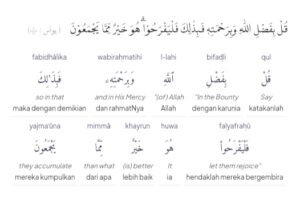 قُلْ بِفَضْلِ اللّٰهِ وَبِرَحْمَتِهٖ فَبِذٰلِكَ فَلْيَفْرَحُوْاۗ هُوَ خَيْرٌ مِّمَّا يَجْمَعُوْنَ ( يونس
fabidhālika wabiraḥmatihi l-lahi bifaḍli qul
قُلْ بِفَضْلِ ٱللَّهِ وَبِرَحْمَتِهِۦ فَبِذَٰلِكَ
so in that and in His Mercy "(of) Allah "In the Bounty Say
maka dengan demikian dan rahmatNya Allah dengan karunia katakanlah
yajmaʿūna mimmā khayrun huwa falyafraḥū
فَلْيَفْرَحُوا۟ هُوَ خَيْرٌ مِّمَّا يَجْمَعُونَ
they accumulate than what (is) better It let them rejoice"
mereka kumpulkan dari apa lebih baik ia hendaklah mereka bergembira